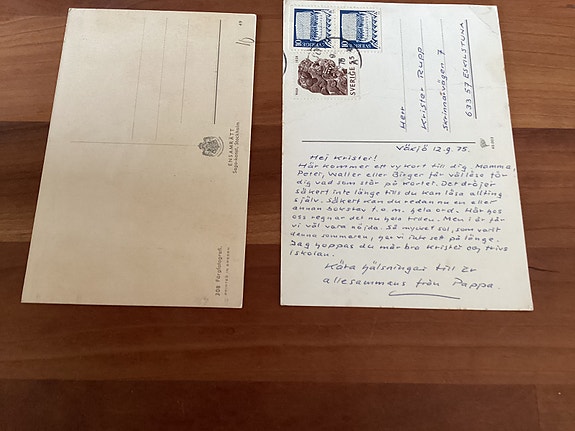 49
10
ENSAMRÄTT
Sago-konst, Stockholm
208 Färgfotografi.
PRINTED IN SWEDEN
SVERIGE 10
SVERIGE 10
SVERIGE
Herr
Krister Rupp
Skrinnarvägen 7
633 57 ESKILSTUNA
Växjö 12.9.75.
Hej Krister!
Här kommer ett vykort till dig. Mamma
Peter, Walter eller Birger får väl läsa för
dig vad som står på kortet. Det dröjer
säkert inte länge till du kan läsa allting
själv. Säkert kan du redan nu en eller
annan bokstav t.o.m. hela ord. Här hos
oss regnar det nu hela tiden. Men i år får
vi väl vara nöjda. Så mycket sol, som varit
denna sommaren, har vi inte set på länge.
Jag hoppas du mår bra Krister och trivs
i skolan.
Kära hälsningar till Er
allesammans från Pappa.